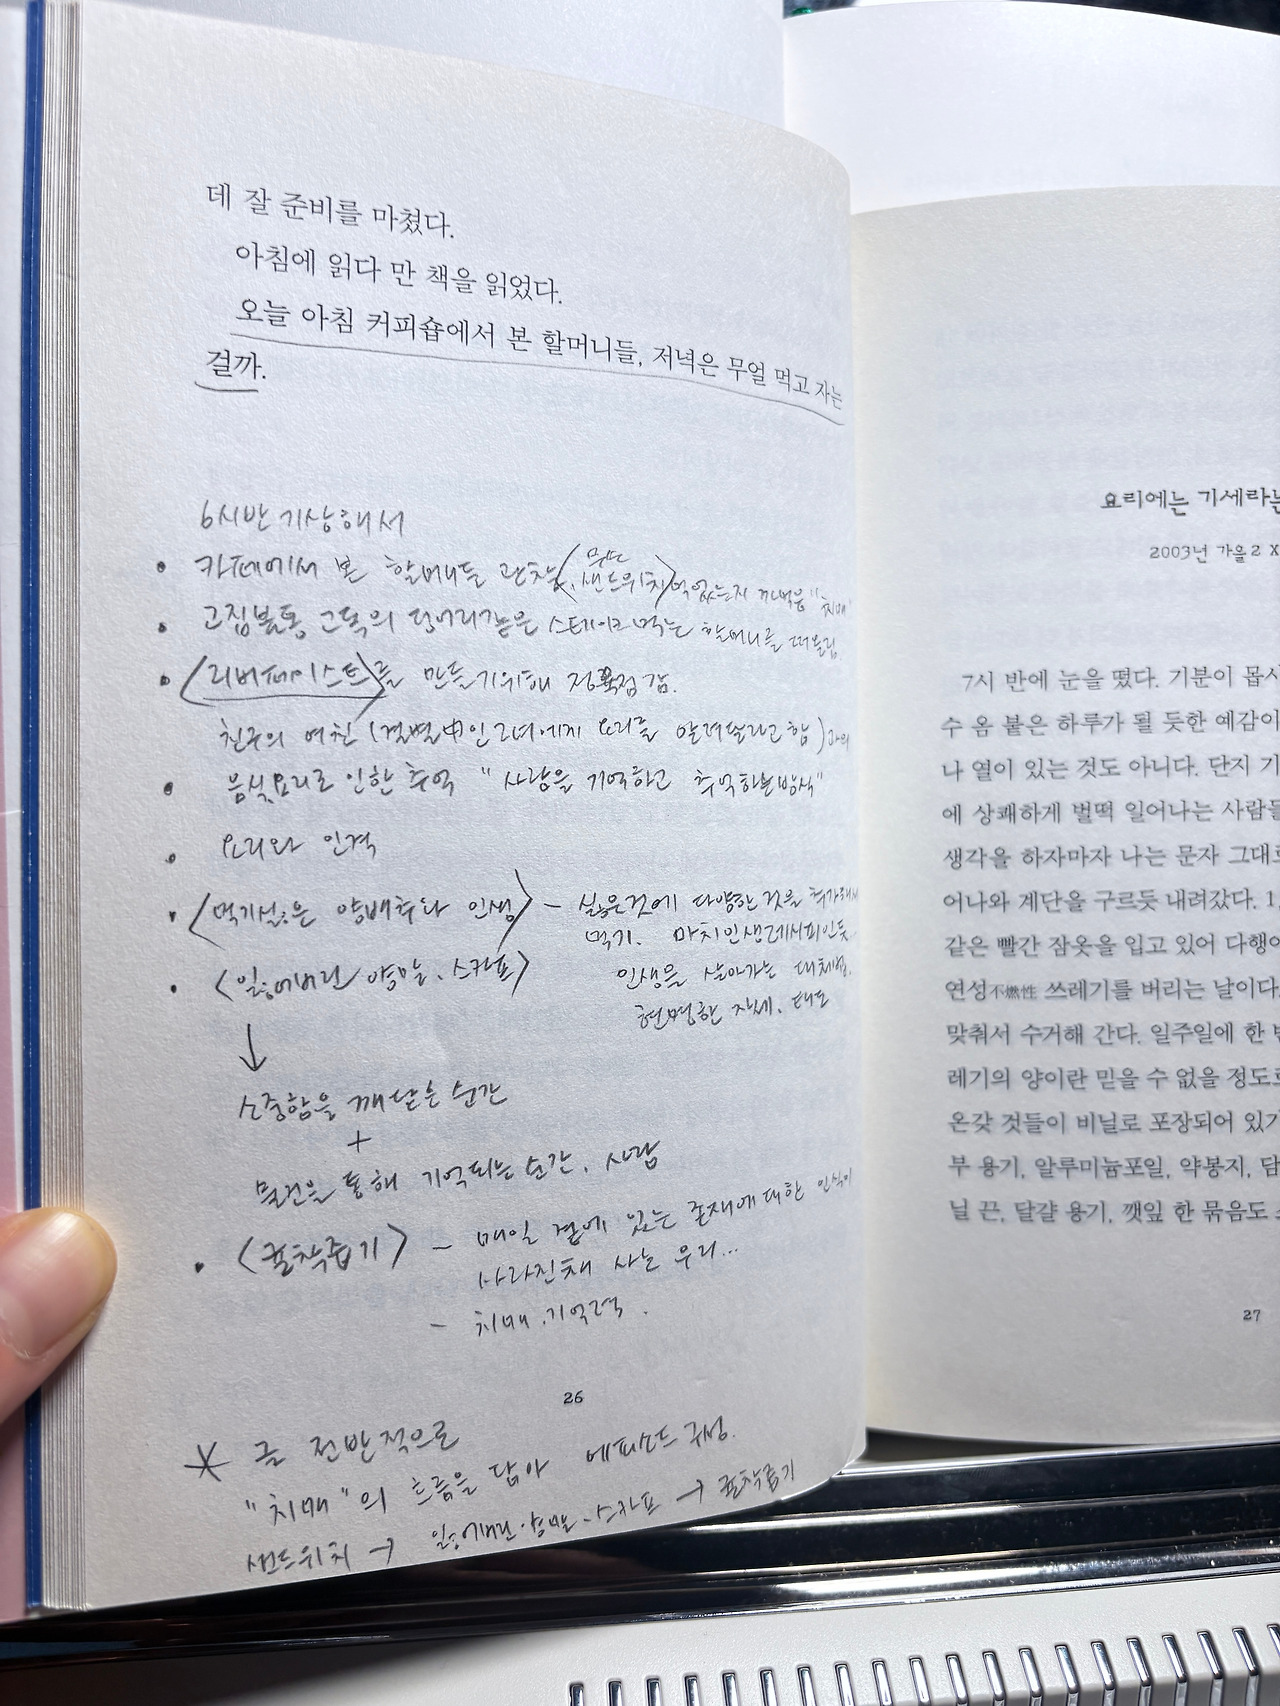 데 잘 준비를 마쳤다.
아침에 읽다 만 책을 읽었다.
오늘 아침 커피숍에서 본 할머니들, 저녁은 무얼 먹고 자는
걸까.
6시반 기상해서
• 카페에서 본 할머니들 관찰 (무슨 샌드위치) 먹었는지 까먹음 "치매"
• 고집불통 고독의 덩어리같은 스테이크 먹는 할머니를 떠올림.
• <리버페이스트>를 만들기위해 정육점 감.
친구의 여친 (결별中인 그녀에게 요리를 알려달라고 함)과의
• 음식, 요리로 인한 추억 "사랑을 기억하고 추억하는방식"
• 요리와 인격
• <먹기싫은 양배추와 인생> - 싫은것에 다양한 것을 추가해서
먹기. 마치 인생레시피인듯
인생을 살아가는 대체법.
현명한 자세. 태도
• <잃어버린 양말、스카프>
↓
소중함을 깨닫는 순간
+
물건을 통해 기억되는 순간、사람
• <귤착즙기> - 매일 곁에 있는 존재에 대한 인식이
사라진채 사는 우리...
- 치매、기억력.
26
* 글 전반적으로
"치매"의 흐름을 담아 에피소드 구성.
샌드위치 → 잃어버린 양말、스카프 → 귤착즙기
요리에는 기세라는
2003년 가을2 X
7시 반에 눈을 떴다. 기분이 몹시
수 옴 붙은 하루가 될 듯한 예감이
나 열이 있는 것도 아니다. 단지 기
에 상쾌하게 벌떡 일어나는 사람들
생각을 하자마자 나는 문자 그대로
어나와 계단을 구르듯 내려갔다. 1,
같은 빨간 잠옷을 입고 있어 다행이
연성不燃性 쓰레기를 버리는 날이다.
맞춰서 수거해 간다. 일주일에 한 번
레기의 양이란 믿을 수 없을 정도로
온갖 것들이 비닐로 포장되어 있기
부 용기, 알루미늄포일, 약봉지, 담
닐 끈, 달걀 용기, 깻잎 한 묶음도
27